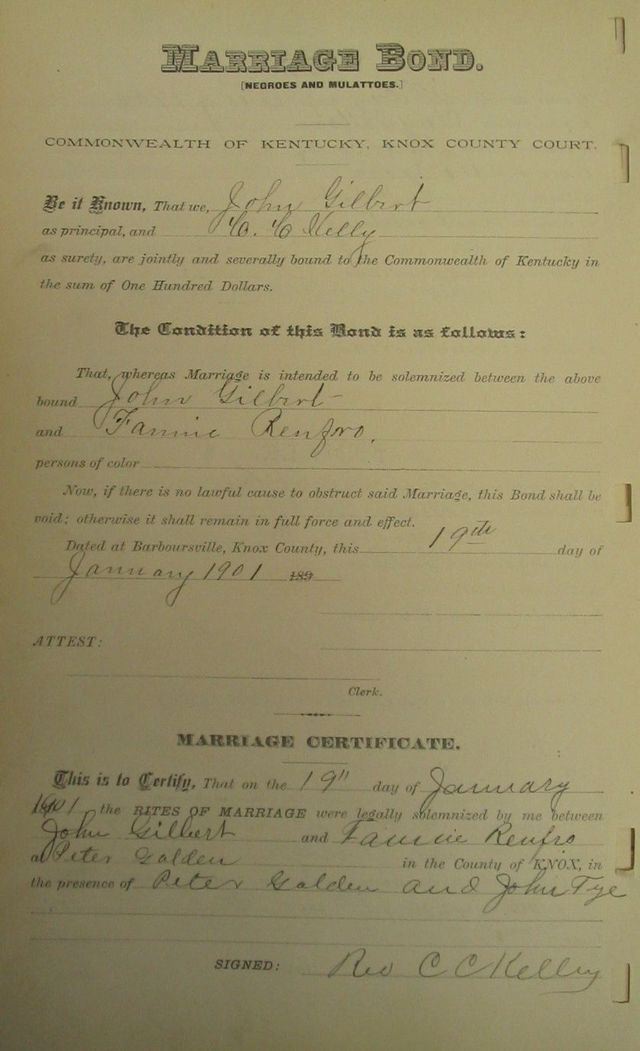 MARRIAGE BOND.
[NEGROES AND MULATTOES.]
COMMONWEALTH OF KENTUCKY, KNOX COUNTY COURT.
Be it Known, That we, John Gilbert
as principal, and C. C Kelly
as surety, are jointly and severally bound to the Commonwealth of Kentucky in
the sum of One Hundred Dollars.
The Condition of this Bond is as follows:
That, whereas Marriage is intended to be solemnized between the above
bound John Gilbert
and Fannie Renfro,
persons of color
Now, if there is no lawful cause to obstruct said Marriage, this Bond shall be
void; otherwise it shall remain in full force and effect.
Dated at Barboursville, Knox County, this 19th day of
January 1901 189
ATTEST:
Clerk.
MARRIAGE CERTIFICATE.
This is to Certify, That on the 19" day of January
1901 the RITES OF MARRIAGE were legally solemnized by me between
John Gilbert and Fannie Renfro
at Peter Golden in the County of KNOX, in
the presence of Peter Golden and John Tye
SIGNED: Rev C C Kelley